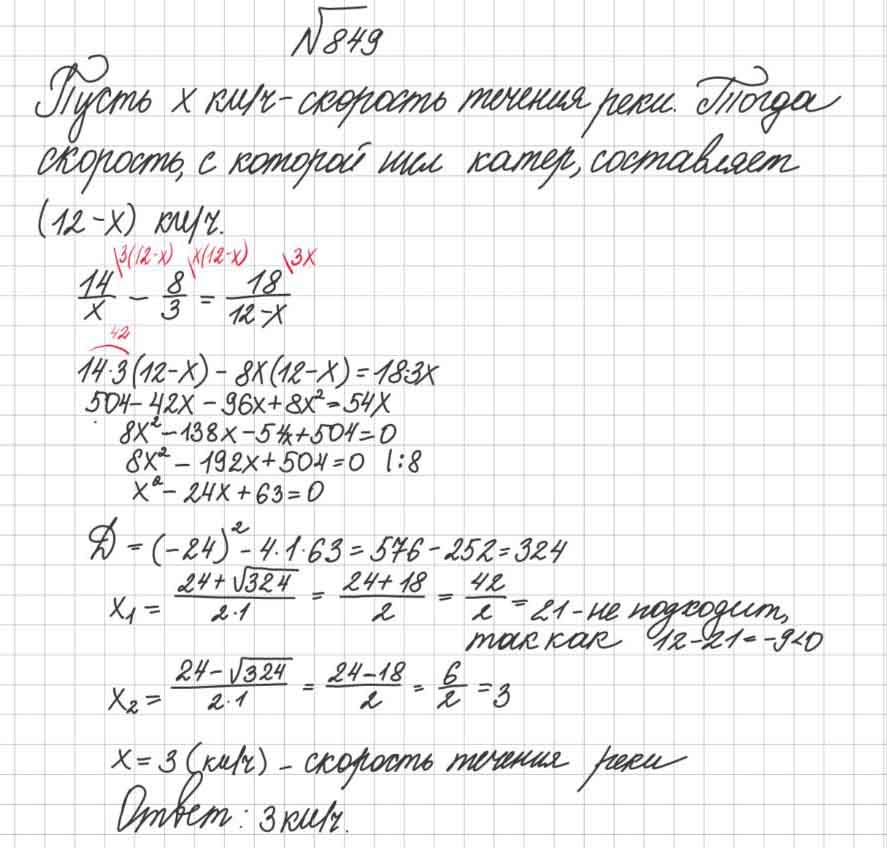 №849
Пусть x км/ч - скорость течения реки. Тогда
скорость, с которой шёл катер, составляет
(12-x) км/ч.
\3(12-x) \x(12-x) \3x
14/x - 8/3 = 18/(12-x)
42
14·3(12-x) - 8x(12-x) = 18·3x
504 - 42x - 96x + 8x² = 54x
8x² - 138x - 54x + 504 = 0
8x² - 192x + 504 = 0 |:8
x² - 24x + 63 = 0
D = (-24)² - 4·1·63 = 576 - 252 = 324
x₁ = (24+√324)/(2·1) = (24+18)/2 = 42/2 = 21 - не подходит,
так как 12-21=-9<0
x₂ = (24-√324)/(2·1) = (24-18)/2 = 6/2 = 3
x = 3 (км/ч) - скорость течения реки
Ответ: 3 км/ч.